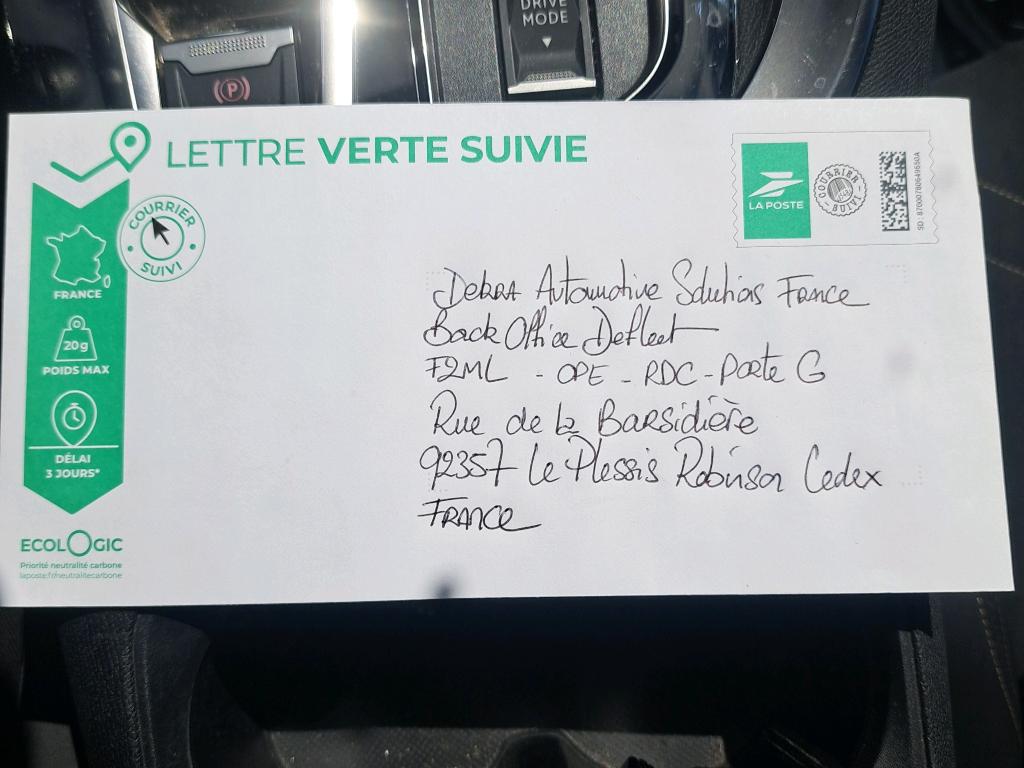 DRIVE
MODE
P
LETTRE VERTE SUIVIE
COURRIER
SUIVI
FRANCE
20g
POIDS MAX
DÉLAI
3 JOURS*
ECOLOGIC
Priorité neutralité carbone
laposte.fr/neutralitecarbone
LA POSTE
COURRIER
SUIVI
SD : 87000780649650A
Dekra Automotive Solutions France
Back Office Defleet
F2ML - OPE - RDC - Porte G
Rue de la Barsidière
92357 Le Plessis Robinson Cedex
FRANCE